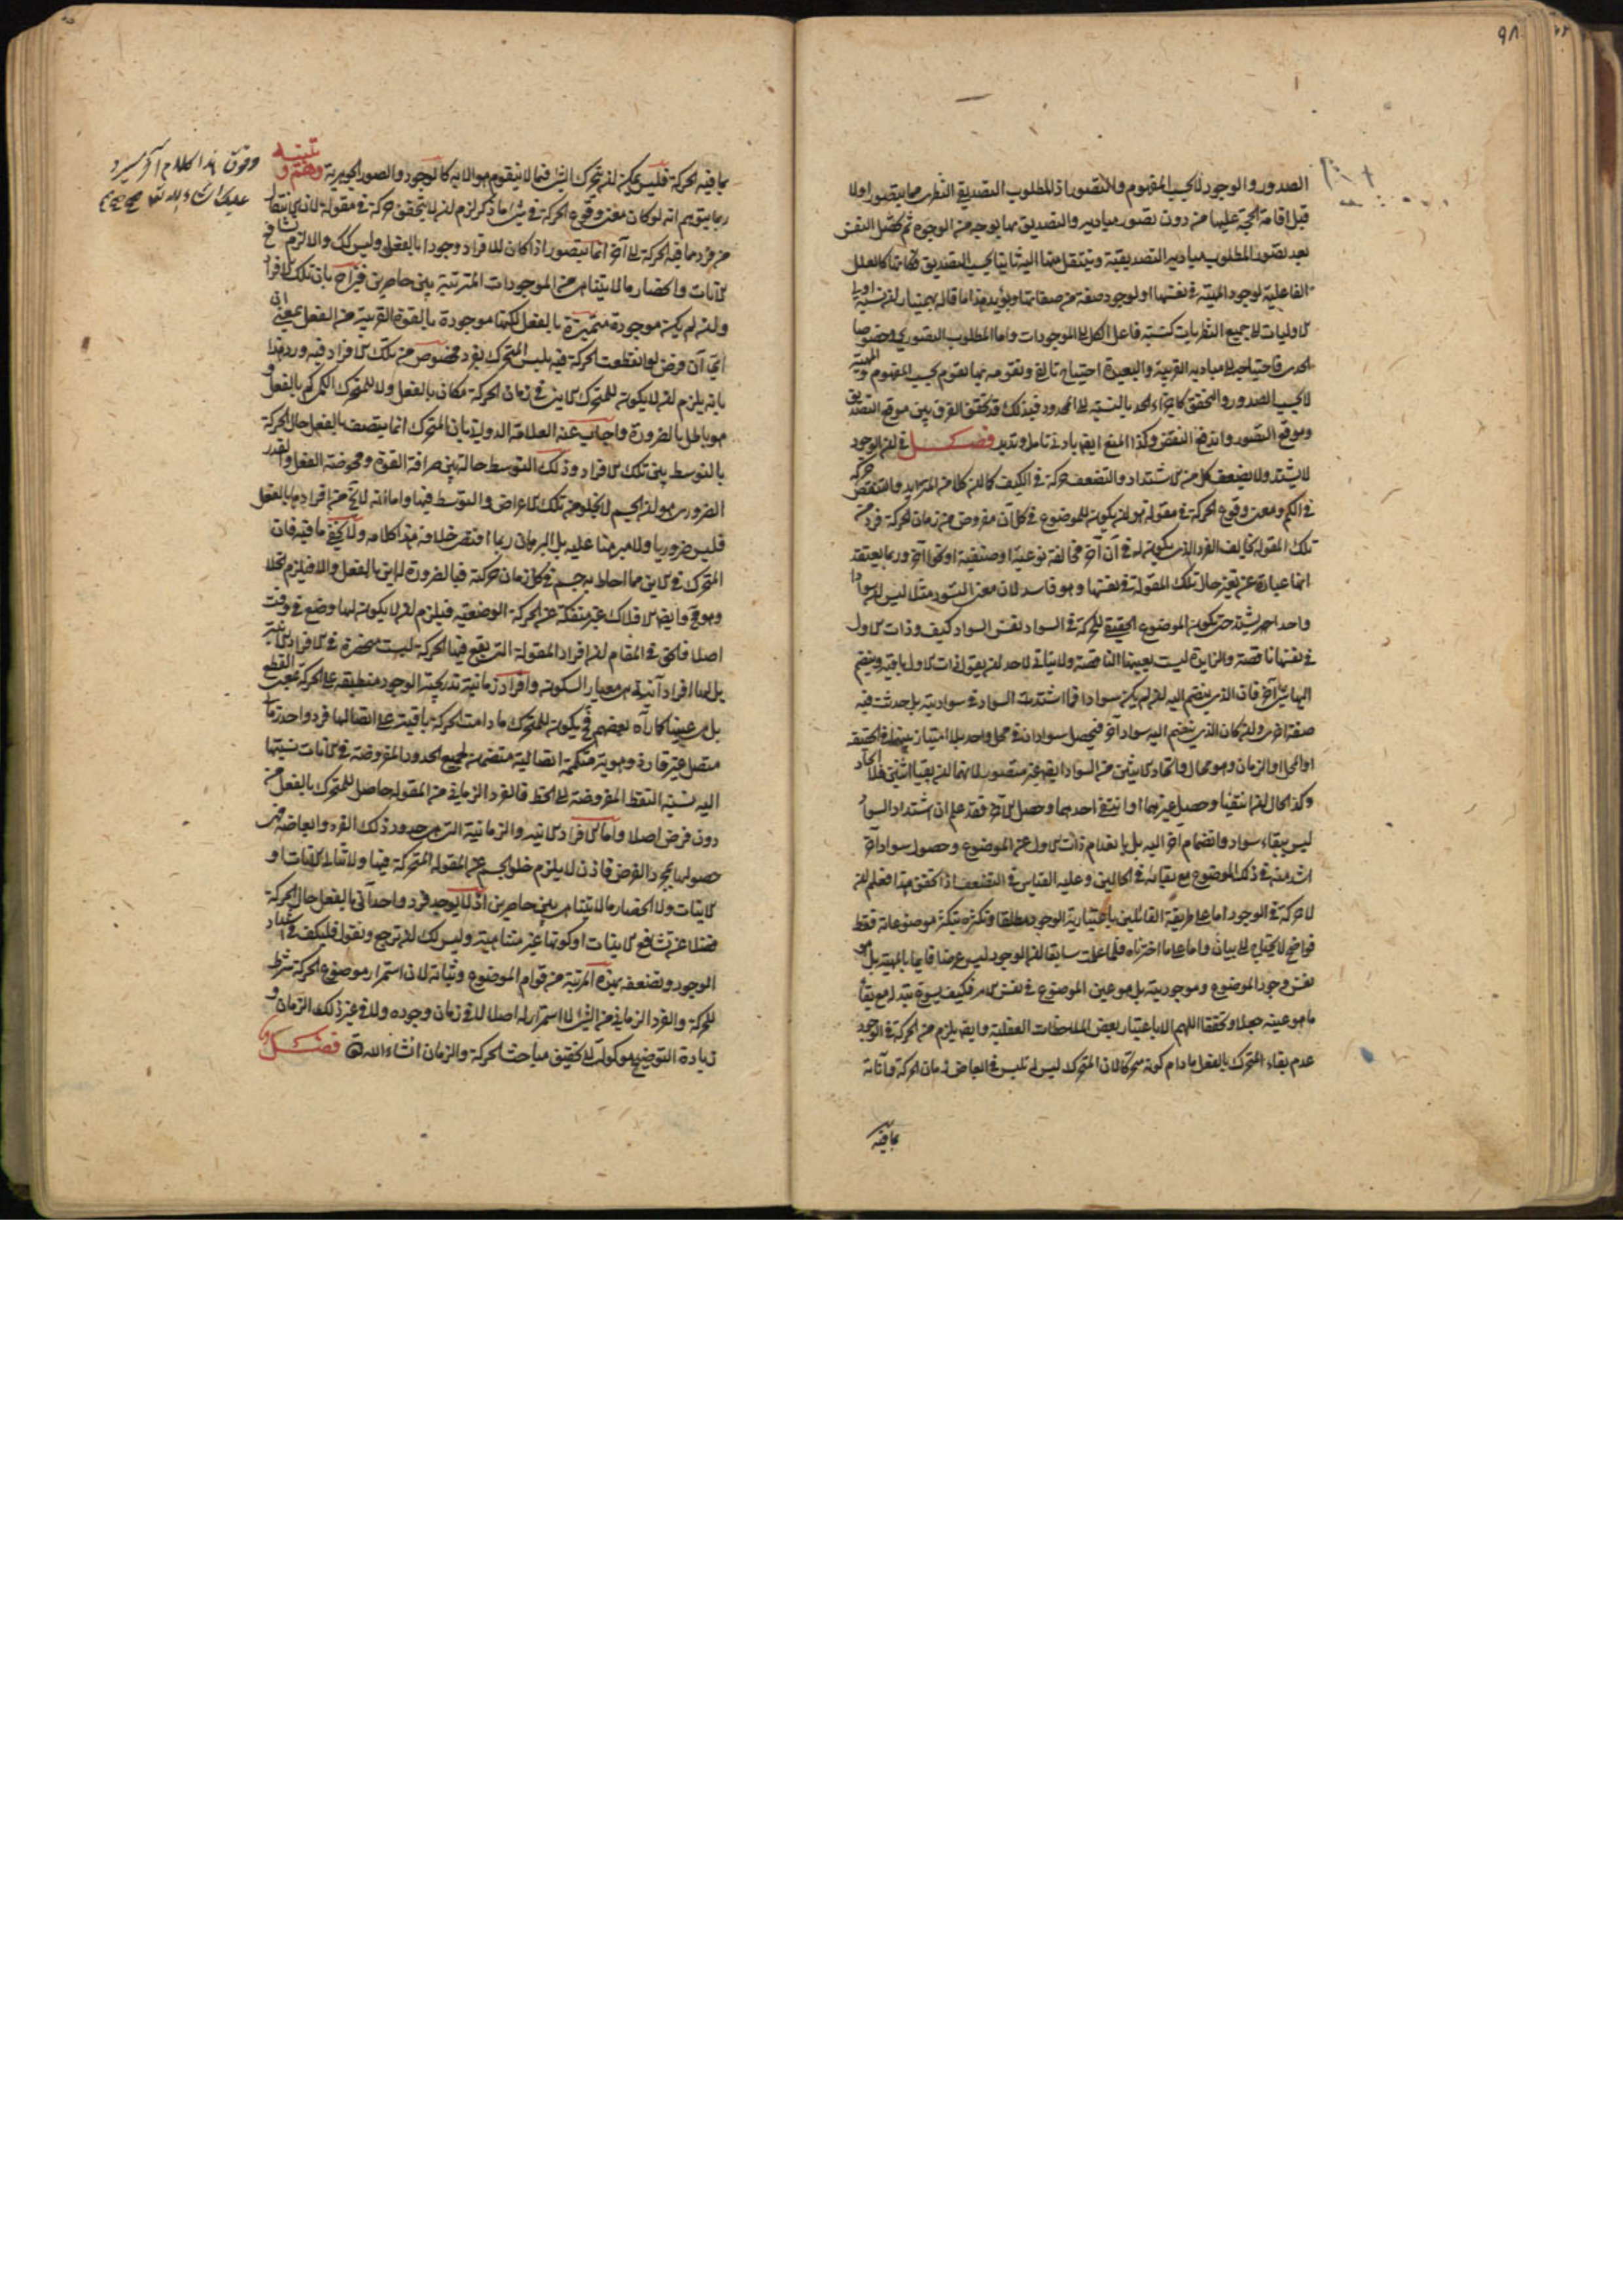 ٩٨
الصدور والوجود لا بحسب المفهوم والتصور اذ المطلوب التصديقى النظرى مما يتصور اولا
قبل اقامة الحجة عليها من دون تصور مباديه والتصديق بها بوجه من الوجوه ثم تحتمل النفس
بعد تصور المطلوب مباديه التصديقية وينتقل منها اليه ثانيا بحسب التصديق فكانها كالعلل
الفاعلية لوجود المهية فى نفسها او لوجود صفة من صفاتها ويؤيد هذا ما قاله بهمنيار ان نسبة
الاوليات الى جميع النظريات كنسبة فاعل الكل الى الموجودات واما المطلوب التصورى وخصوصا
الحدى فاحتياجه الى مباديه القريبة والبعيدة احتياج تالف وتقومه بها تقوم بحسب المفهوم والمهية
لا بحسب الصدور والتحقق كاجزاء الحد بالنسبة الى المحدود فبذلك قد تحقق الفرق بين موقع التصديق
وموقع التصور واندفع النقض وكذا المنع ايضا بادنى تامل وتدبر فصل فى ان الوجود
لا يشتد ولا يضعف كل من الاشتداد والتضعف حركة فى الكيف كما ان كلا من التزايد والتنقص حركة
فى الكم ومعنى وقوع الحركة فى مقولة هو ان يكون للموضوع فى كل آن مفروض من زمان الحركة فرد من
تلك المقولة يخالف الفرد الذى يكون له فى آن آخر مخالفة نوعية او صنفية او نحوا آخر وربما يعتقد
انها عبارة عن تغير حال تلك المقولة فى نفسها وهو فاسد لان معنى التسود مثلا ليس ان سوادا
واحدا يشتد حتى يكون الموضوع الحقيقى للحركة فى السواد نفس السواد كيف وذات الاول
فى نفسها ناقصة والزايدة ليست بعينها الناقصة ولا يتاتى لاحد ان يقول ذات الاول باقية وينضم
اليها شئ آخر فان الذى ينضم اليه ان لم يكن سوادا فما اشتد السواد فى سواديته بل حدثت فيه
صفة اخرى وان كان الذى ينضم اليه سوادا آخر فيحصل سوادان فى محل واحد بلا امتياز بينهما فى الحقيقة
او المحل او الزمان وهو محال واتحاد الاثنين من السواد ايضا غير متصور لانهما ان بقيا اثنين فلا اتحاد
وكذا الحال ان انتفيا وحصل غيرهما او انتفى احدهما وحصل الآخر فقد علم ان اشتداد السواد
ليس ببقاء سواد وانضمام آخر اليه بل بانعدام ذات الاول عن الموضوع وحصول سواد آخر
اشد منه فى ذلك الموضوع مع بقائه فى الحالين وعليه القياس فى التضعف اذا تحقق هذا فعلم ان
لا حركة فى الوجود اما على طريقة القائلين باعتبارية الوجود مطلقا وتكثره بتكثر موضوعاته فقط
فواضح لا يحتاج الى بيان واما على ما اخترناه فلما علمت سابقا ان الوجود ليس عرضا قايما بالمهية بل هو
نفس وجود الموضوع وموجوديته بل هو عين الموضوع فى نفس الامر فكيف يسوغ تبدله مع بقاء
ما هو عينه جعلا وتحققا اللهم الا باعتبار بعض الملاحظات العقلية وايضا يلزم من الحركة فى الوجود
عدم بقاء المتحرك بالفعل ما دام كونه متحركا لان المتحرك ليس له تلبس فى ابعاض زمان الحركة وآناته
بما فيه
بما فيه الحركة فليس يمكن ان يتحرك الشئ فيما لا يتقوم هو الا به كالوجود والصور الجوهرية وهم و تنبيه
ربما يتوهم انه لو كان معنى وقوع الحركة فى شئ ما ذكر لزم ان لا يتحقق حركة فى مقولة لان اى انتقال
من فرد مما فيه الحركة الى آخر انما يتصور اذا كان للافراد وجودا بالفعل وليس كك والا لزم تشافع
الآنات وانحصار ما لا يتناهى من الموجودات المترتبة بين حاصرين فيزاح بان تلك الافراد
وان لم يكن موجودة متميزة بالفعل لكنها موجودة بالقوة القريبة من الفعل بمعنى انى
اى آن فرض لو انقطعت الحركة فيه يلبس المتحرك بفرد مخصوص من تلك الافراد فيه ورد هذا
بانه يلزم ان لا يكون للمتحرك الاينى فى زمان الحركة مكان بالفعل ولا للمتحرك الكمى كم بالفعل و
هو باطل بالضرورة واجاب عنه العلامة الدوانى بان المتحرك انما يتصف بالفعل حال الحركة
بالتوسط بين تلك الافراد وذلك التوسط حالة بين صرافة القوة ومحوضة الفعل والقدر
الضرورى هو ان الجسم لا يخلو من تلك الاعراض والتوسط فيها واما انه لا يخ من افرادها بالفعل
فليس ضروريا ولا مبرهنا عليه بل البرهان ربما اقتضى خلافه هذا كلامه ولا يخفى ما فيه فان
المتحرك فى الاين مما احاط به جسم فى كل زمان حركته فبالضرورة له اين بالفعل والا فيلزم الخلا
وهو مح وايضا الافلاك غير منفكة عن الحركة الوضعية فيلزم ان لا يكون لها وضع فى وقت
اصلا فالحق فى المقام ان افراد المقولة التى يقع فيها الحركة ليست منحصرة فى الافراد الآنية
بل لها افراد آنية هى معيار السكون وافراد زمانية تدريجية الوجود منطبقة على الحركة بمعنى القطع
بل هى عينها كما رآه بعضهم فح يكون للمتحرك ما دامت الحركة باقية على اتصالها فرد واحد زمانى
متصل غير قار ذو هوية متكممة اتصالية متضمنة لجميع الحدود المفروضة فى الآنات نسبتها
اليه نسبة النقط المفروضة الى الخط فالفرد الزمانى من المقولة حاصل للمتحرك بالفعل من
دون فرض اصلا واما الافراد الآنية والزمانية التى هى حدود ذلك الفرد وابعاضه فهى
حصولها بمجرد الفرض فاذن لا يلزم خلو الجسم عن المقولة المتحركة فيها ولا تتالى الآنات او
الآنيات ولا انحصار ما لا يتناهى بين حاصرين اذ لا يوجد فرد واحد آنى بالفعل حال الحركة
فضلا عن تشافع الآنيات او كونها غير متناهية وليس لك ان ترجع وتقول فليكف فى اشتداد
الوجود وتضعفه بهذه المرتبة من قوام الموضوع وثباته لان استمرار موضوع الحركة شرط
للحركة والفرد الزمانى من الشئ لا استمرار له اصلا لا فى زمان وجوده ولا فى غير ذلك الزمان و
زيادة التوضيح موكولة الى تحقيق مباحث الحركة والزمان انشاء الله فصل
وفوق هذا كلام آخر سيرد
عليك انشاء الله